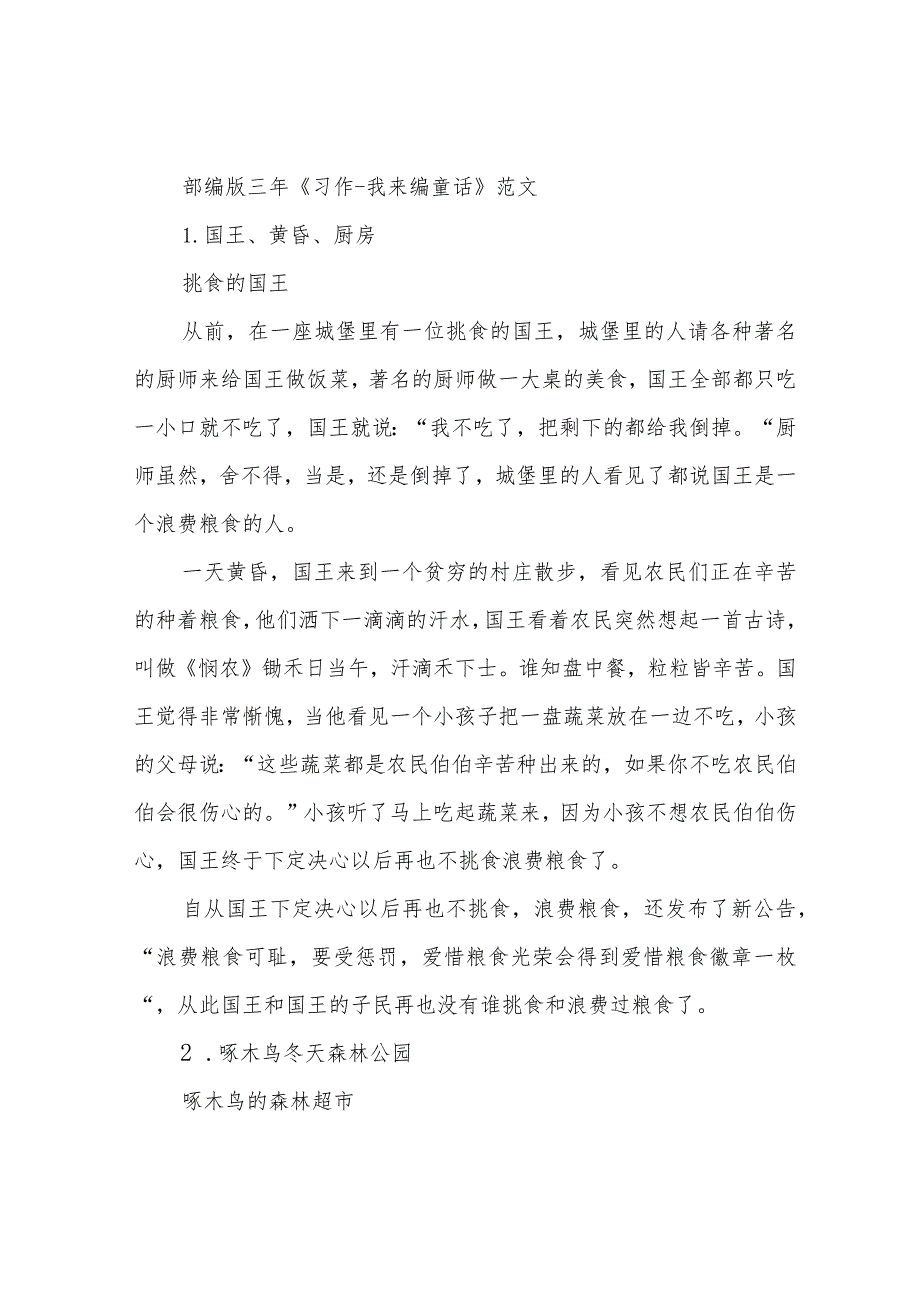 部编版三年《习作-我来编童话》范文
1.国王、黄昏、厨房
挑食的国王
从前，在一座城堡里有一位挑食的国王，城堡里的人请各种著名
的厨师来给国王做饭菜，著名的厨师做一大桌的美食，国王全部都只吃
一小口就不吃了，国王就说：“我不吃了，把剩下的都给我倒掉。“厨
师虽然，舍不得，当是，还是倒掉了，城堡里的人看见了都说国王是一
个浪费粮食的人。
一天黄昏，国王来到一个贫穷的村庄散步，看见农民们正在辛苦
的种着粮食，他们洒下一滴滴的汗水，国王看着农民突然想起一首古诗，
叫做《悯农》锄禾日当午，汗滴禾下士。谁知盘中餐，粒粒皆辛苦。国
王觉得非常惭愧，当他看见一个小孩子把一盘蔬菜放在一边不吃，小孩
的父母说：“这些蔬菜都是农民伯伯辛苦种出来的，如果你不吃农民伯
伯会很伤心的。”小孩听了马上吃起蔬菜来，因为小孩不想农民伯伯伤
心，国王终于下定决心以后再也不挑食浪费粮食了。
自从国王下定决心以后再也不挑食，浪费粮食，还发布了新公告，
“浪费粮食可耻，要受惩罚，爱惜粮食光荣会得到爱惜粮食徽章一枚
“，从此国王和国王的子民再也没有谁挑食和浪费过粮食了。
２ .啄木鸟冬天森林公园
啄木鸟的森林超市